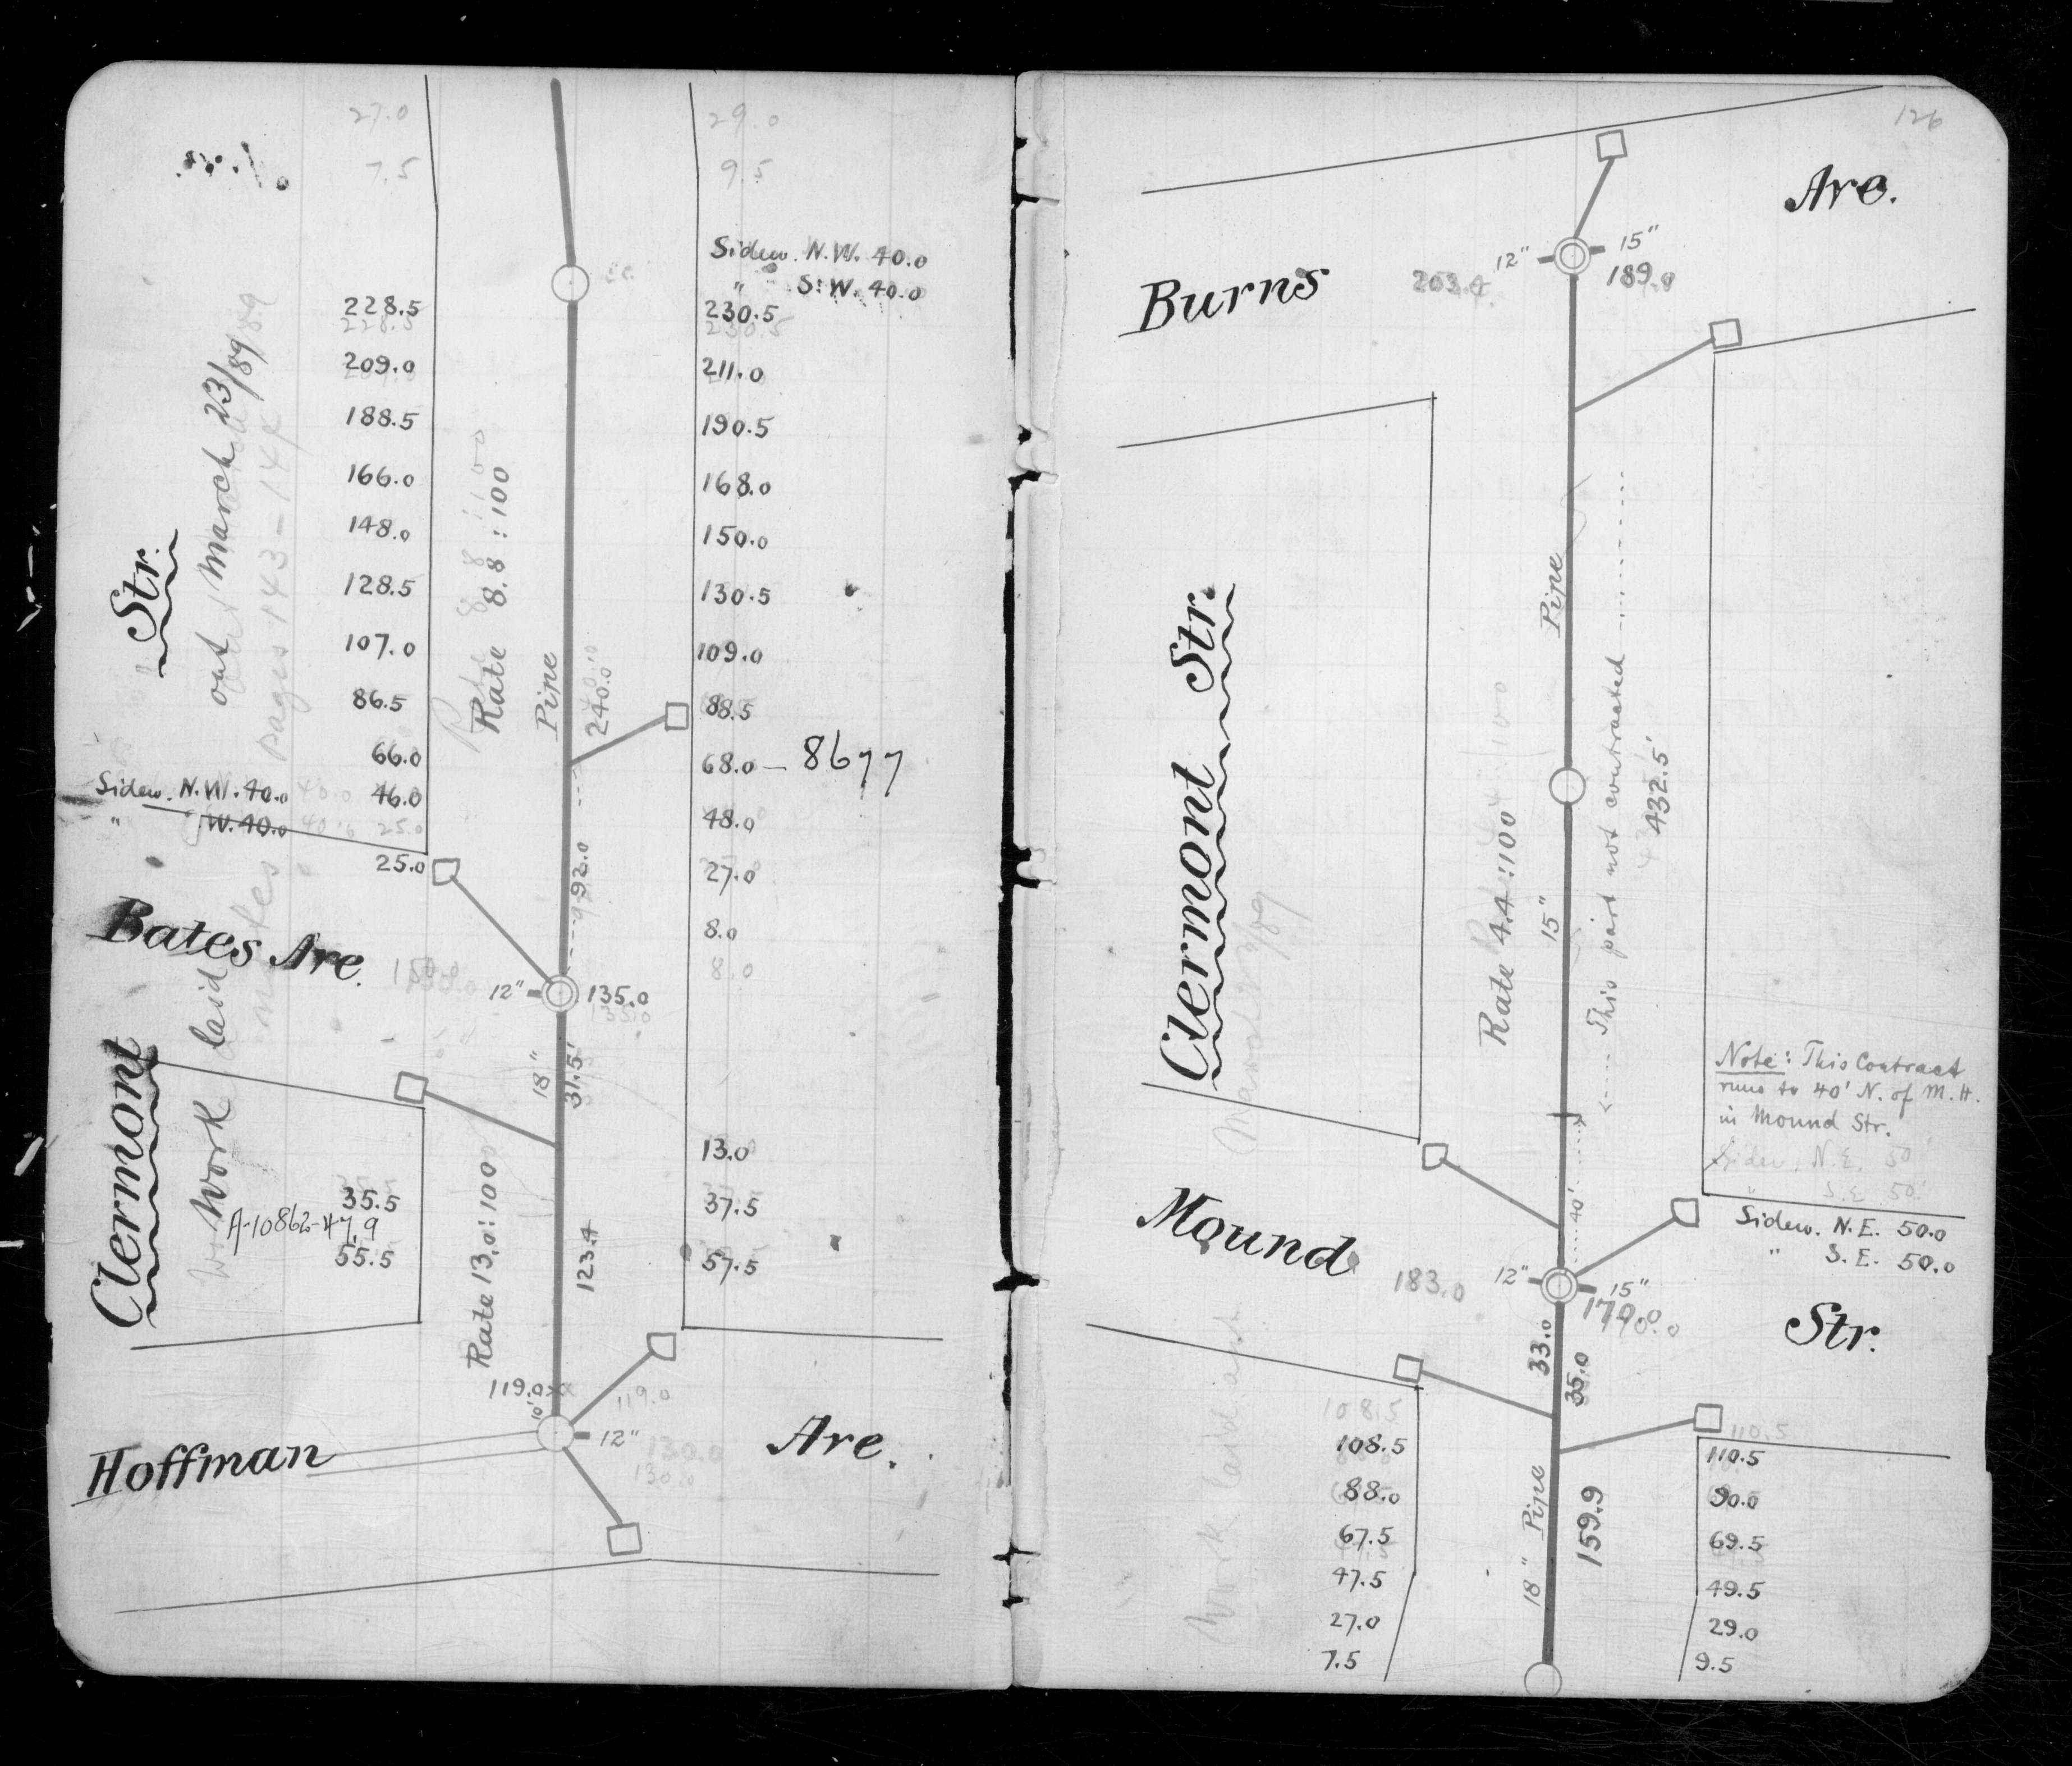 27.0
29.0
7.5
9.5
Sidew. N.W. 40.0
" S.W. 40.0
228.5
230.5
209.0
211.0
188.5
190.5
166.0
168.0
148.0
150.0
128.5
130.5
107.0
109.0
86.5
88.5
66.0
68.0 — 8677
Sidew. N.W. 40.0
46.0
48.0
" W. 40.0
25.0
27.0
8.0
8.0
Clermont Str.
Work laid out March 23/89
pages 143-14
Rate 8.8 : 100
Pipe
240.0
92.0
Bates Ave.
150.0
12"
135.0
135.0
18"
31.5'
13.0
35.5
37.5
A-10862-47.9
55.5
57.5
Rate 13.0 : 100
123.4
119.0
10'
119.0
Hoffman Ave.
12"
130.0
130.0
126
Burns Ave.
15"
12"
203.4
189.0
Clermont Str.
Pipe
Rate 4.4 : 100
15"
This part not contracted
432.5'
Note: This Contract
runs to 40' N. of M.H.
in Mound Str.
Sidew. N.E. 50
" S.E. 50'
Sidew. N.E. 50.0
" S.E. 50.0
40'
Mound Str.
183.0
12"
15"
170.0
170.0
33.0
35.0
18" Pipe
159.9
Work laid out
108.5
110.5
108.5
110.5
88.0
90.0
67.5
69.5
47.5
49.5
27.0
29.0
7.5
9.5